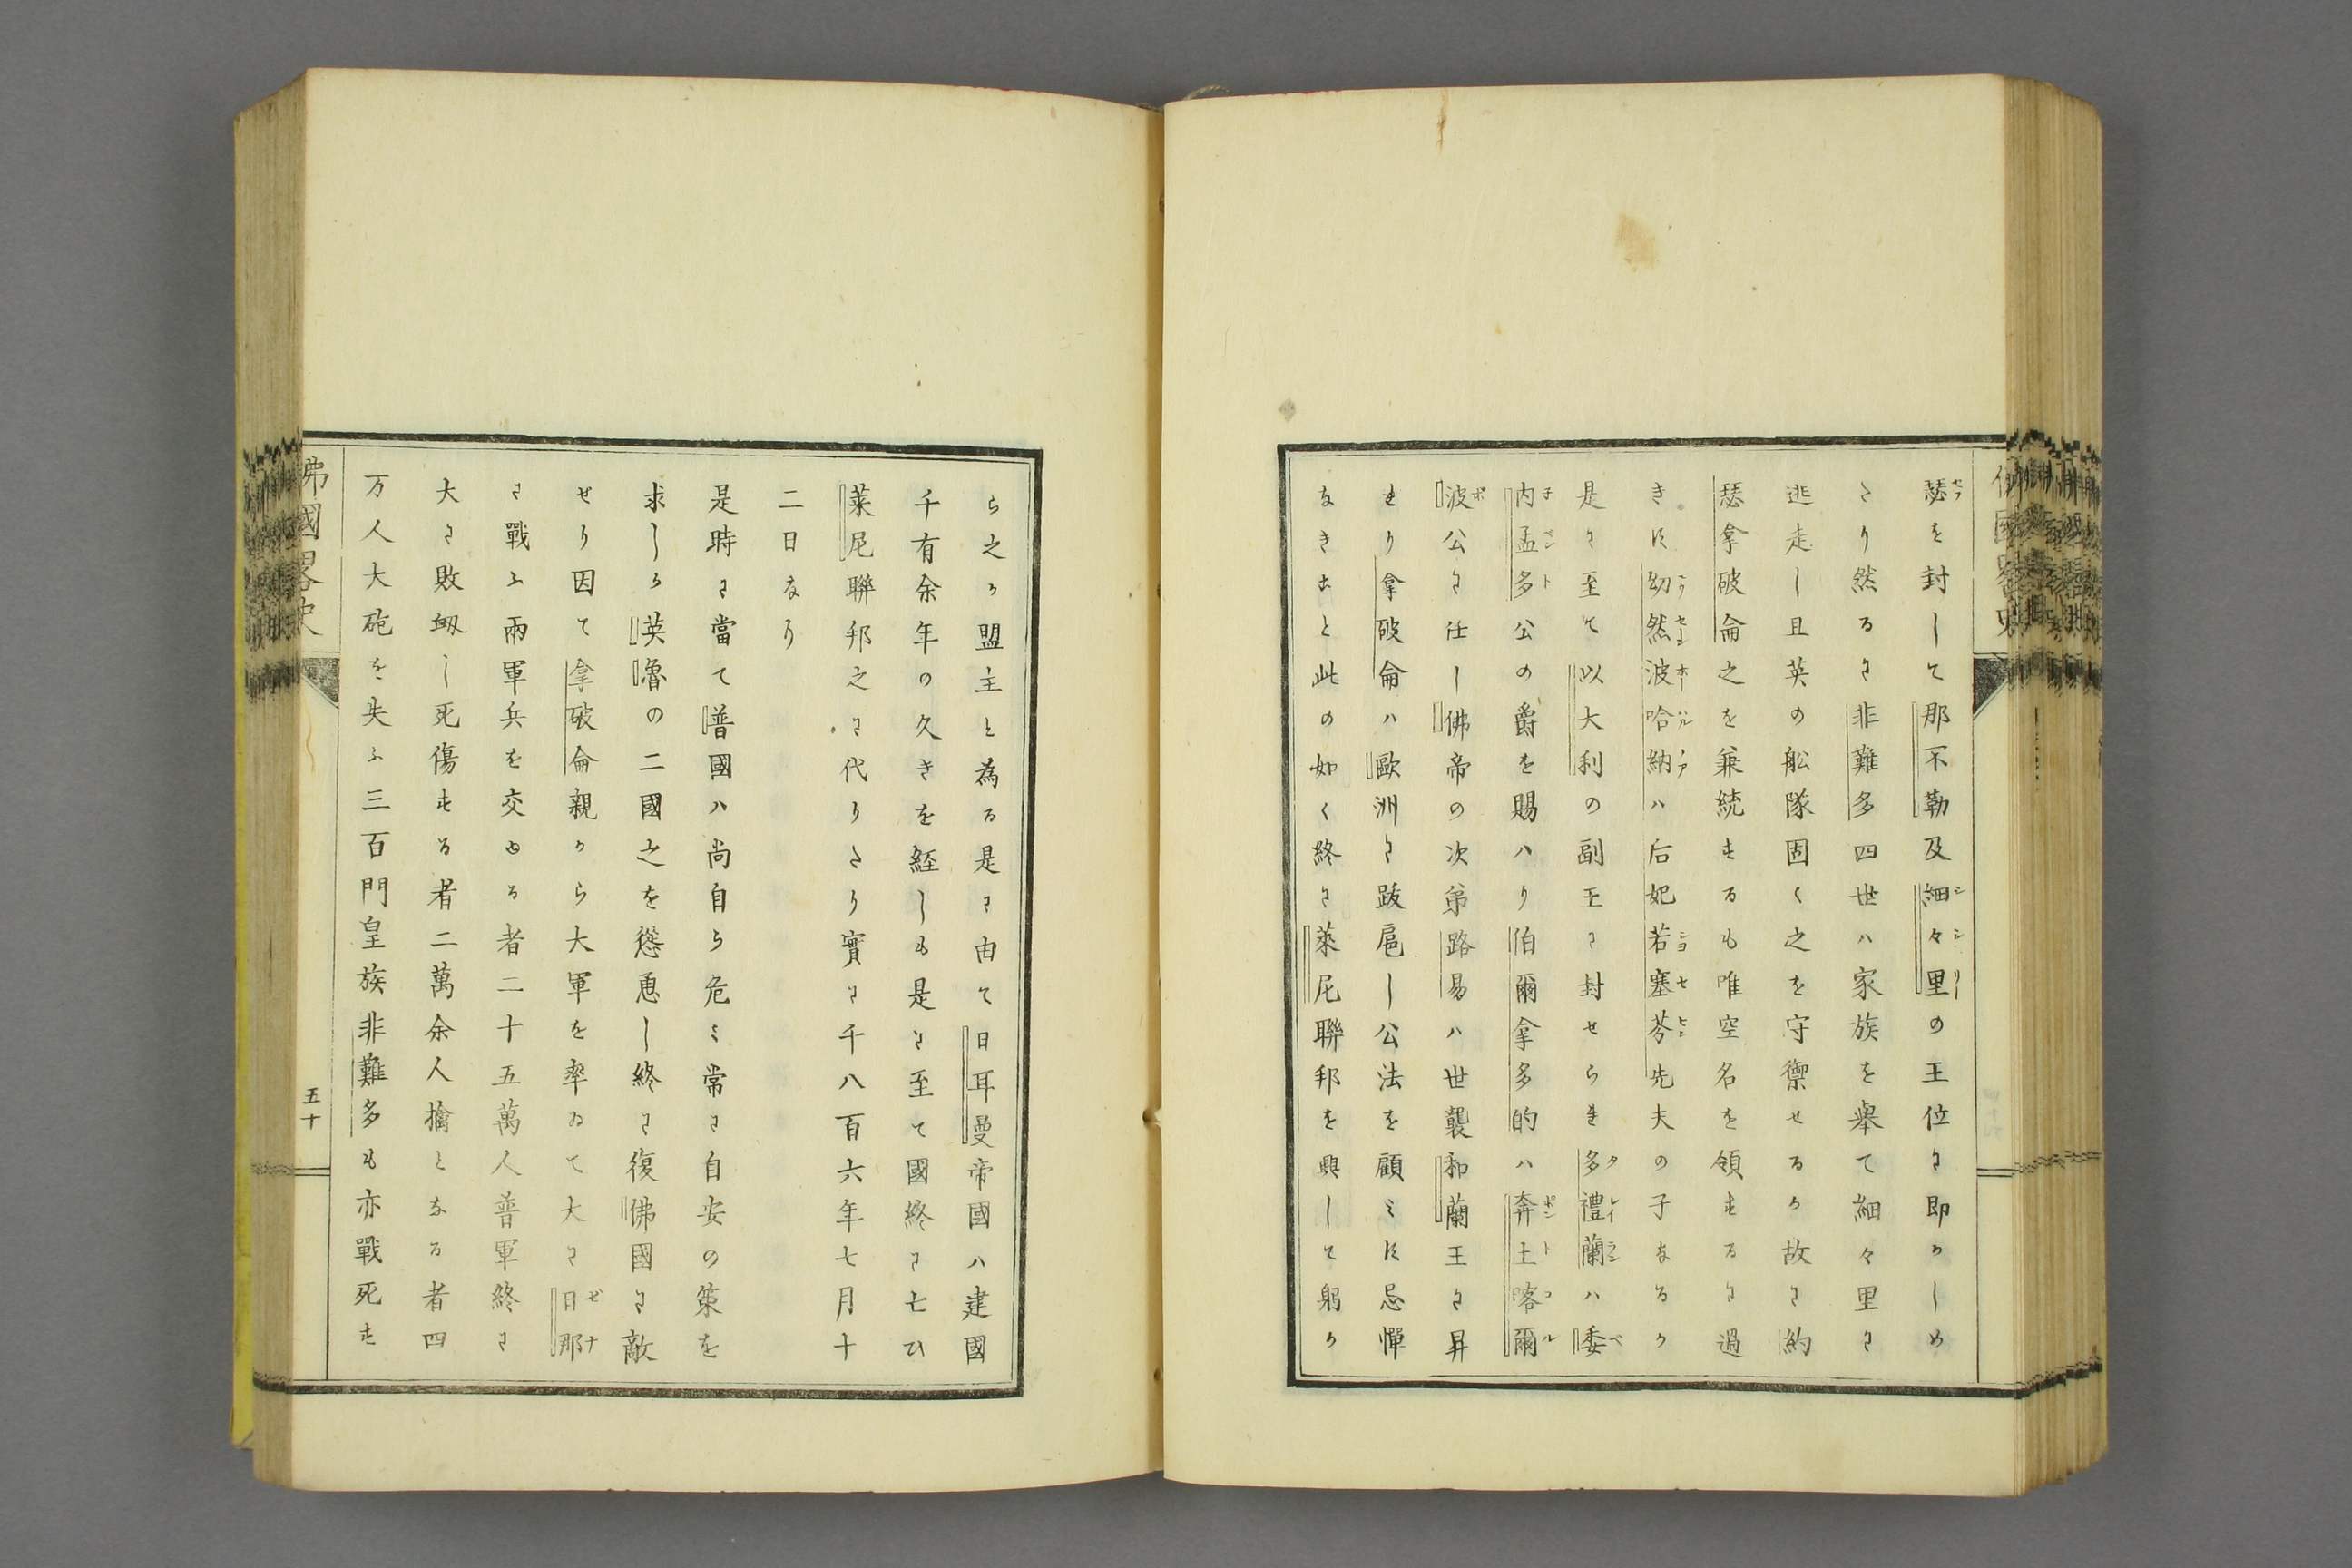 瑟を封して那不勒及細々里の王位に即かしめ
たり然るに非難多四世ハ家族を擧て細々里に
逃走し且英の舩隊固く之を守禦せるか故に約
瑟拿破侖之を兼統するも唯空名を領するに過
きす幼然波哈納ハ后妃若塞芬先夫の子なるか
是に至て以大利の副王に封せられ多禮蘭ハ委
内孟多公の爵を賜ハり伯爾拿多的ハ奔土喀爾
波公に任し佛帝の次弟路易ハ世襲和蘭王に昇
れり拿破侖ハ歐洲に跋扈し公法を顧ミす忌憚
なきこと此の如く終に萊尼聯邦を興して躬か
ら之か盟主と為る是に由て日耳曼帝國ハ建國
千有余年の久きを経しも是に至て國終に亡ひ
萊尼聯邦之に代りたり實に千八百六年七月十
二日なり
是時に當て普國ハ尚自ら危ミ常に自安の策を
求しか英魯の二國之を慫慂し終に復佛國に敵
せり因て拿破侖親から大軍を率ゐて大に日那
に戰ふ兩軍兵を交ゆる者二十五萬人普軍終に
大に敗衂し死傷する者二萬余人擒となる者四
万人大砲を失ふ三百門皇族非難多も亦戰死す
佛國畧史
五十